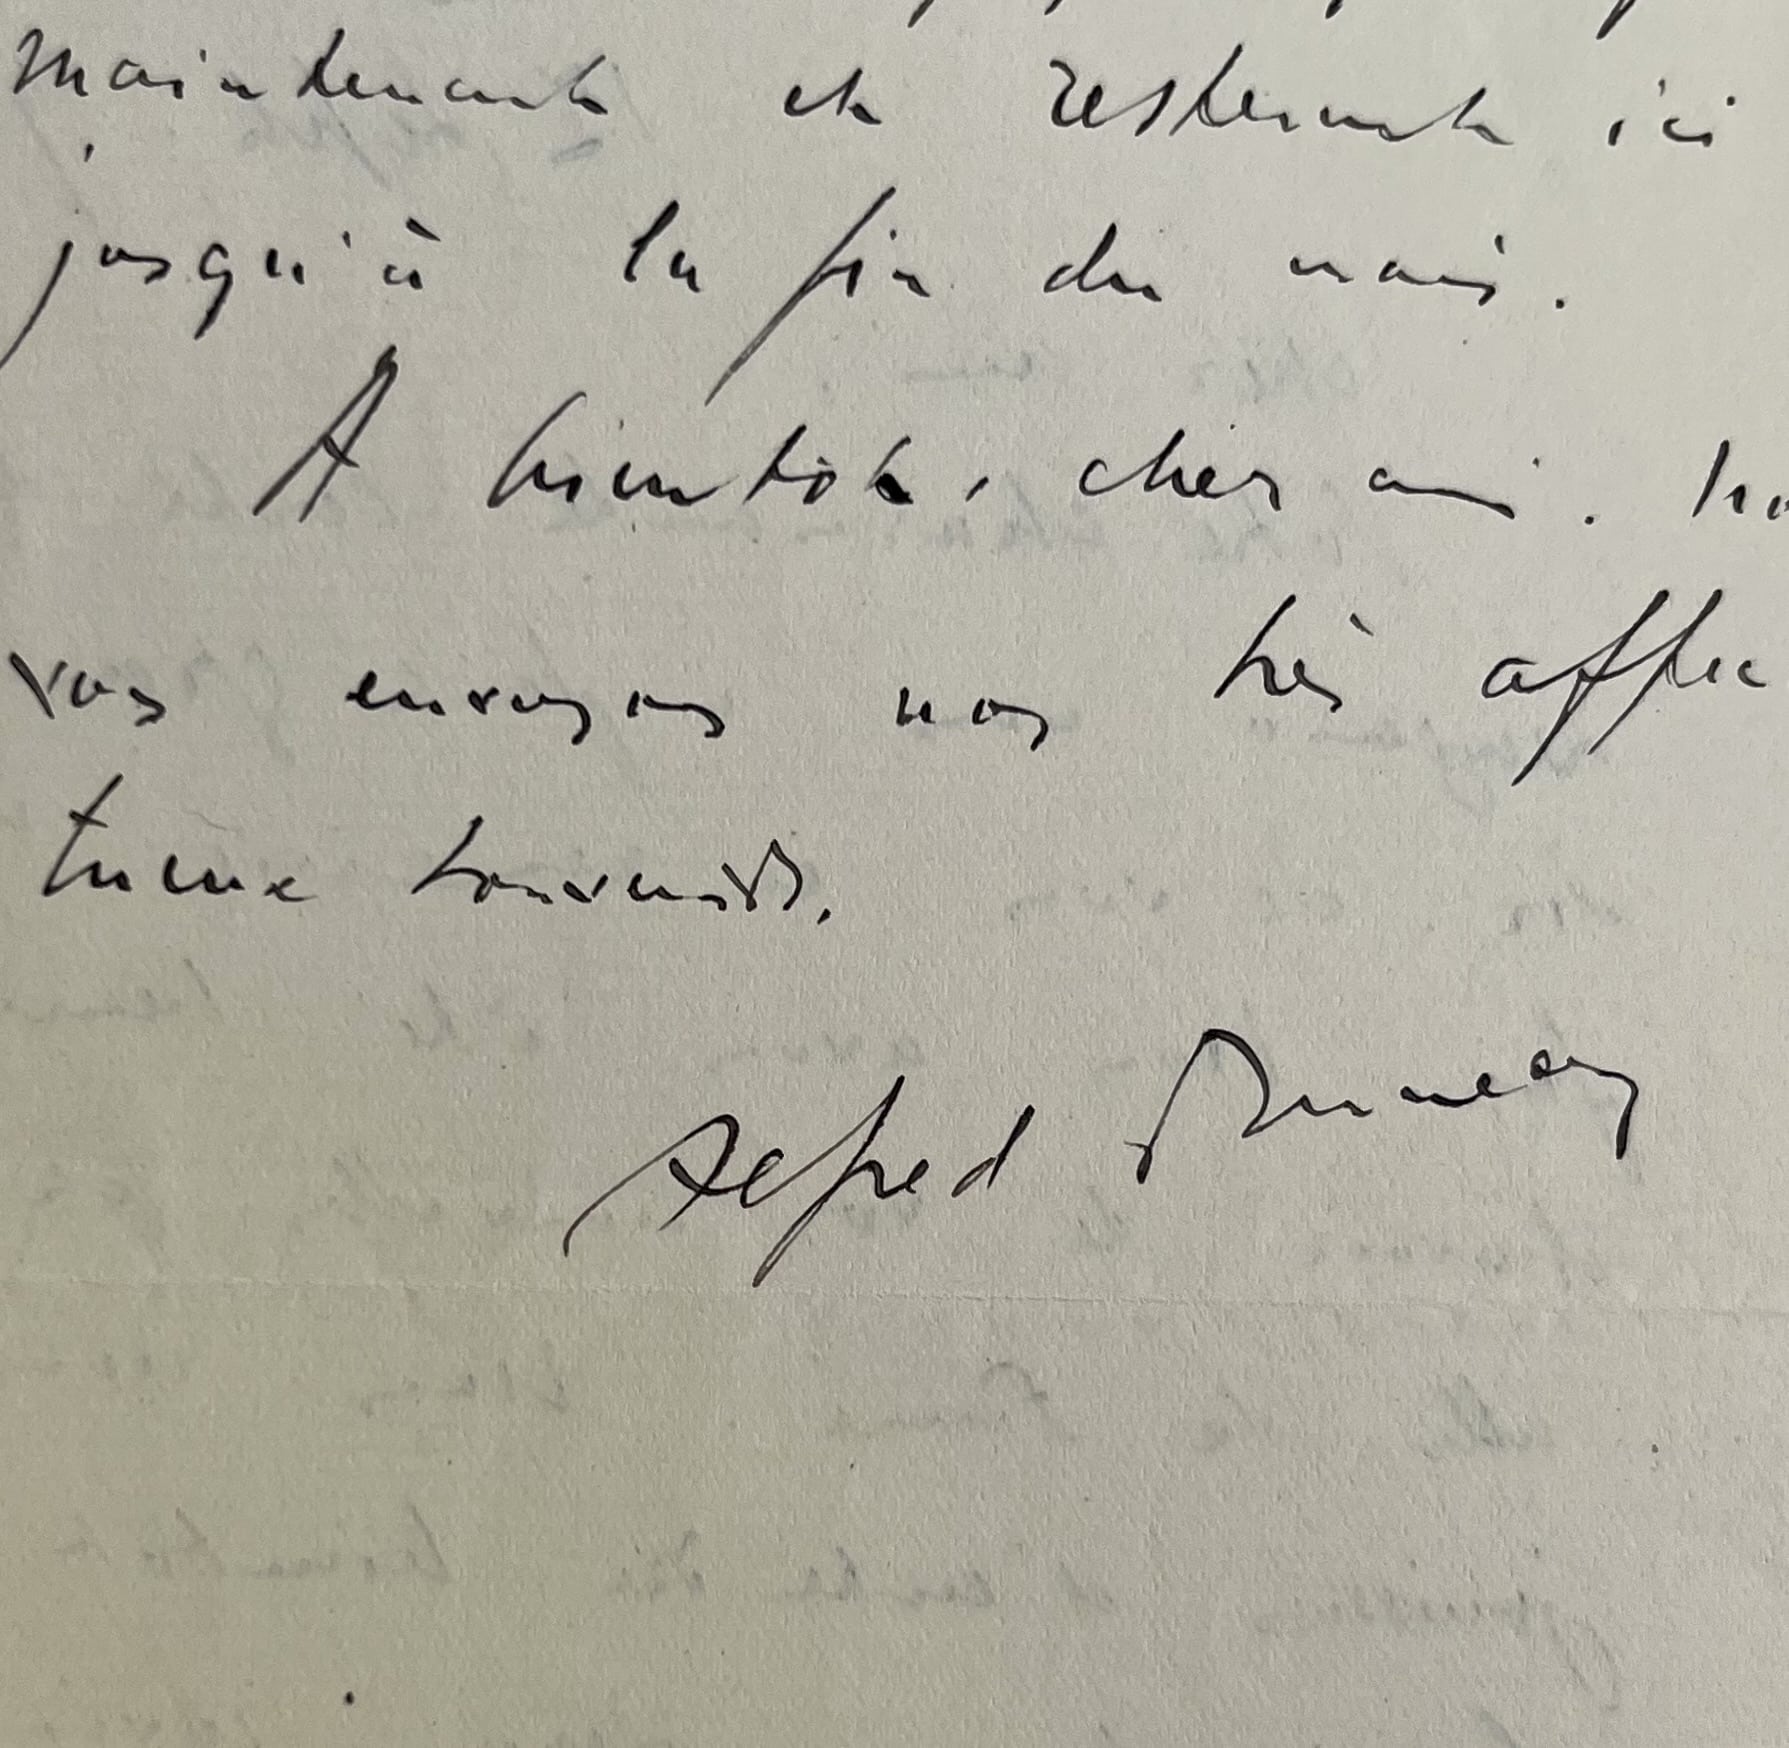 maintenant et resteront ici
jusqu'à la fin du mois.
A bientôt, cher ami.
vous envoyons nos très affec
tueux souvenirs.
Alfred Bruneau